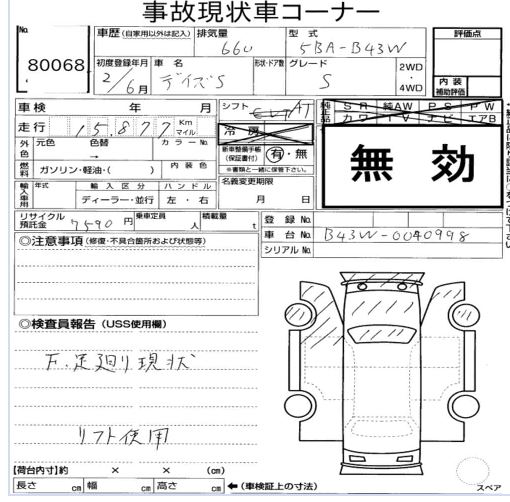 事故現状車コーナー
No.
80068
車歴 (自家用以外は記入)
排気量
660
型式
5BA-B43W
評価点
初度登録年月
2年 6月
車名
デイズS
形状・ドア数
グレード
S
2WD
・
4WD
内装
補助評価
車検 年 月
シフト
AT
走行 15,877 Km
マイル
冷房
純正品
SR 純AW PS PW
カワ TV ナビ エアB
外色
元色
色替
カラーNo.
→
新車整備手帳
(保証書付)
有・無
※書類と一緒に保管下さい。
無効
燃料
ガソリン・軽油・( )
内装色
輸入車用
年式
輸入区分
ハンドル
ディーラー・並行
左・右
名義変更期限
月 日
リサイクル
預託金
7590 円
乗車定員
人
積載量
t
登録No.
車台No. B43W-0040998
シリアルNo.
◎注意事項 (修復・不具合箇所および状態等)
◎検査員報告 (USS使用欄)
F.足廻り現状
リフト使用
【荷台内寸】約 × × (cm)
長さ cm 幅 cm 高さ cm ←(車検証上の寸法)
スペア